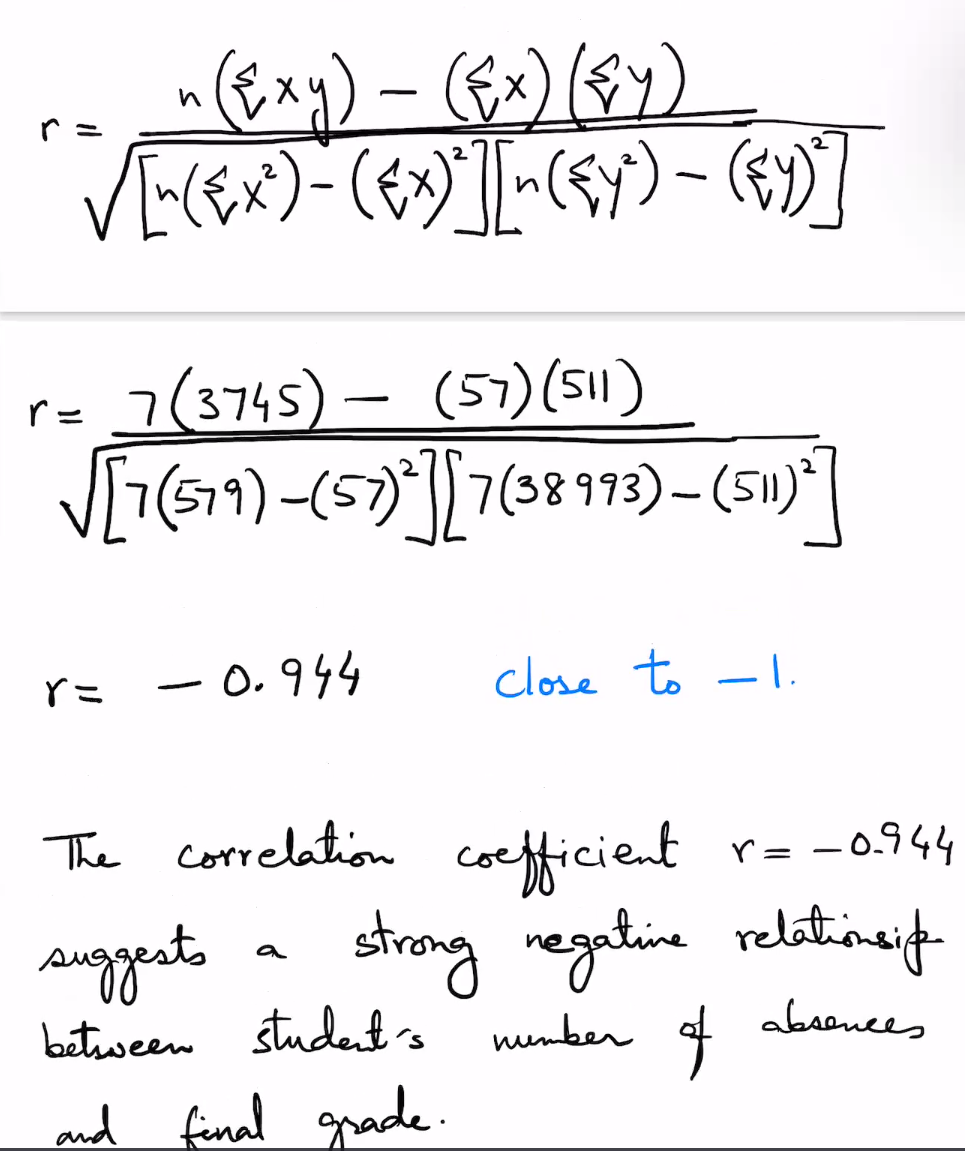 r = n(Σxy) − (Σx)(Σy)
√[n(Σx²) − (Σx)²][n(Σy²) − (Σy)²]
r = 7(3745) − (57)(511)
√[7(579) − (57)²][7(38993) − (511)²]
r = − 0.944 close to − 1.
The correlation coefficient r = − 0.944
suggests a strong negative relationsip
between student's number of absences
and final grade.